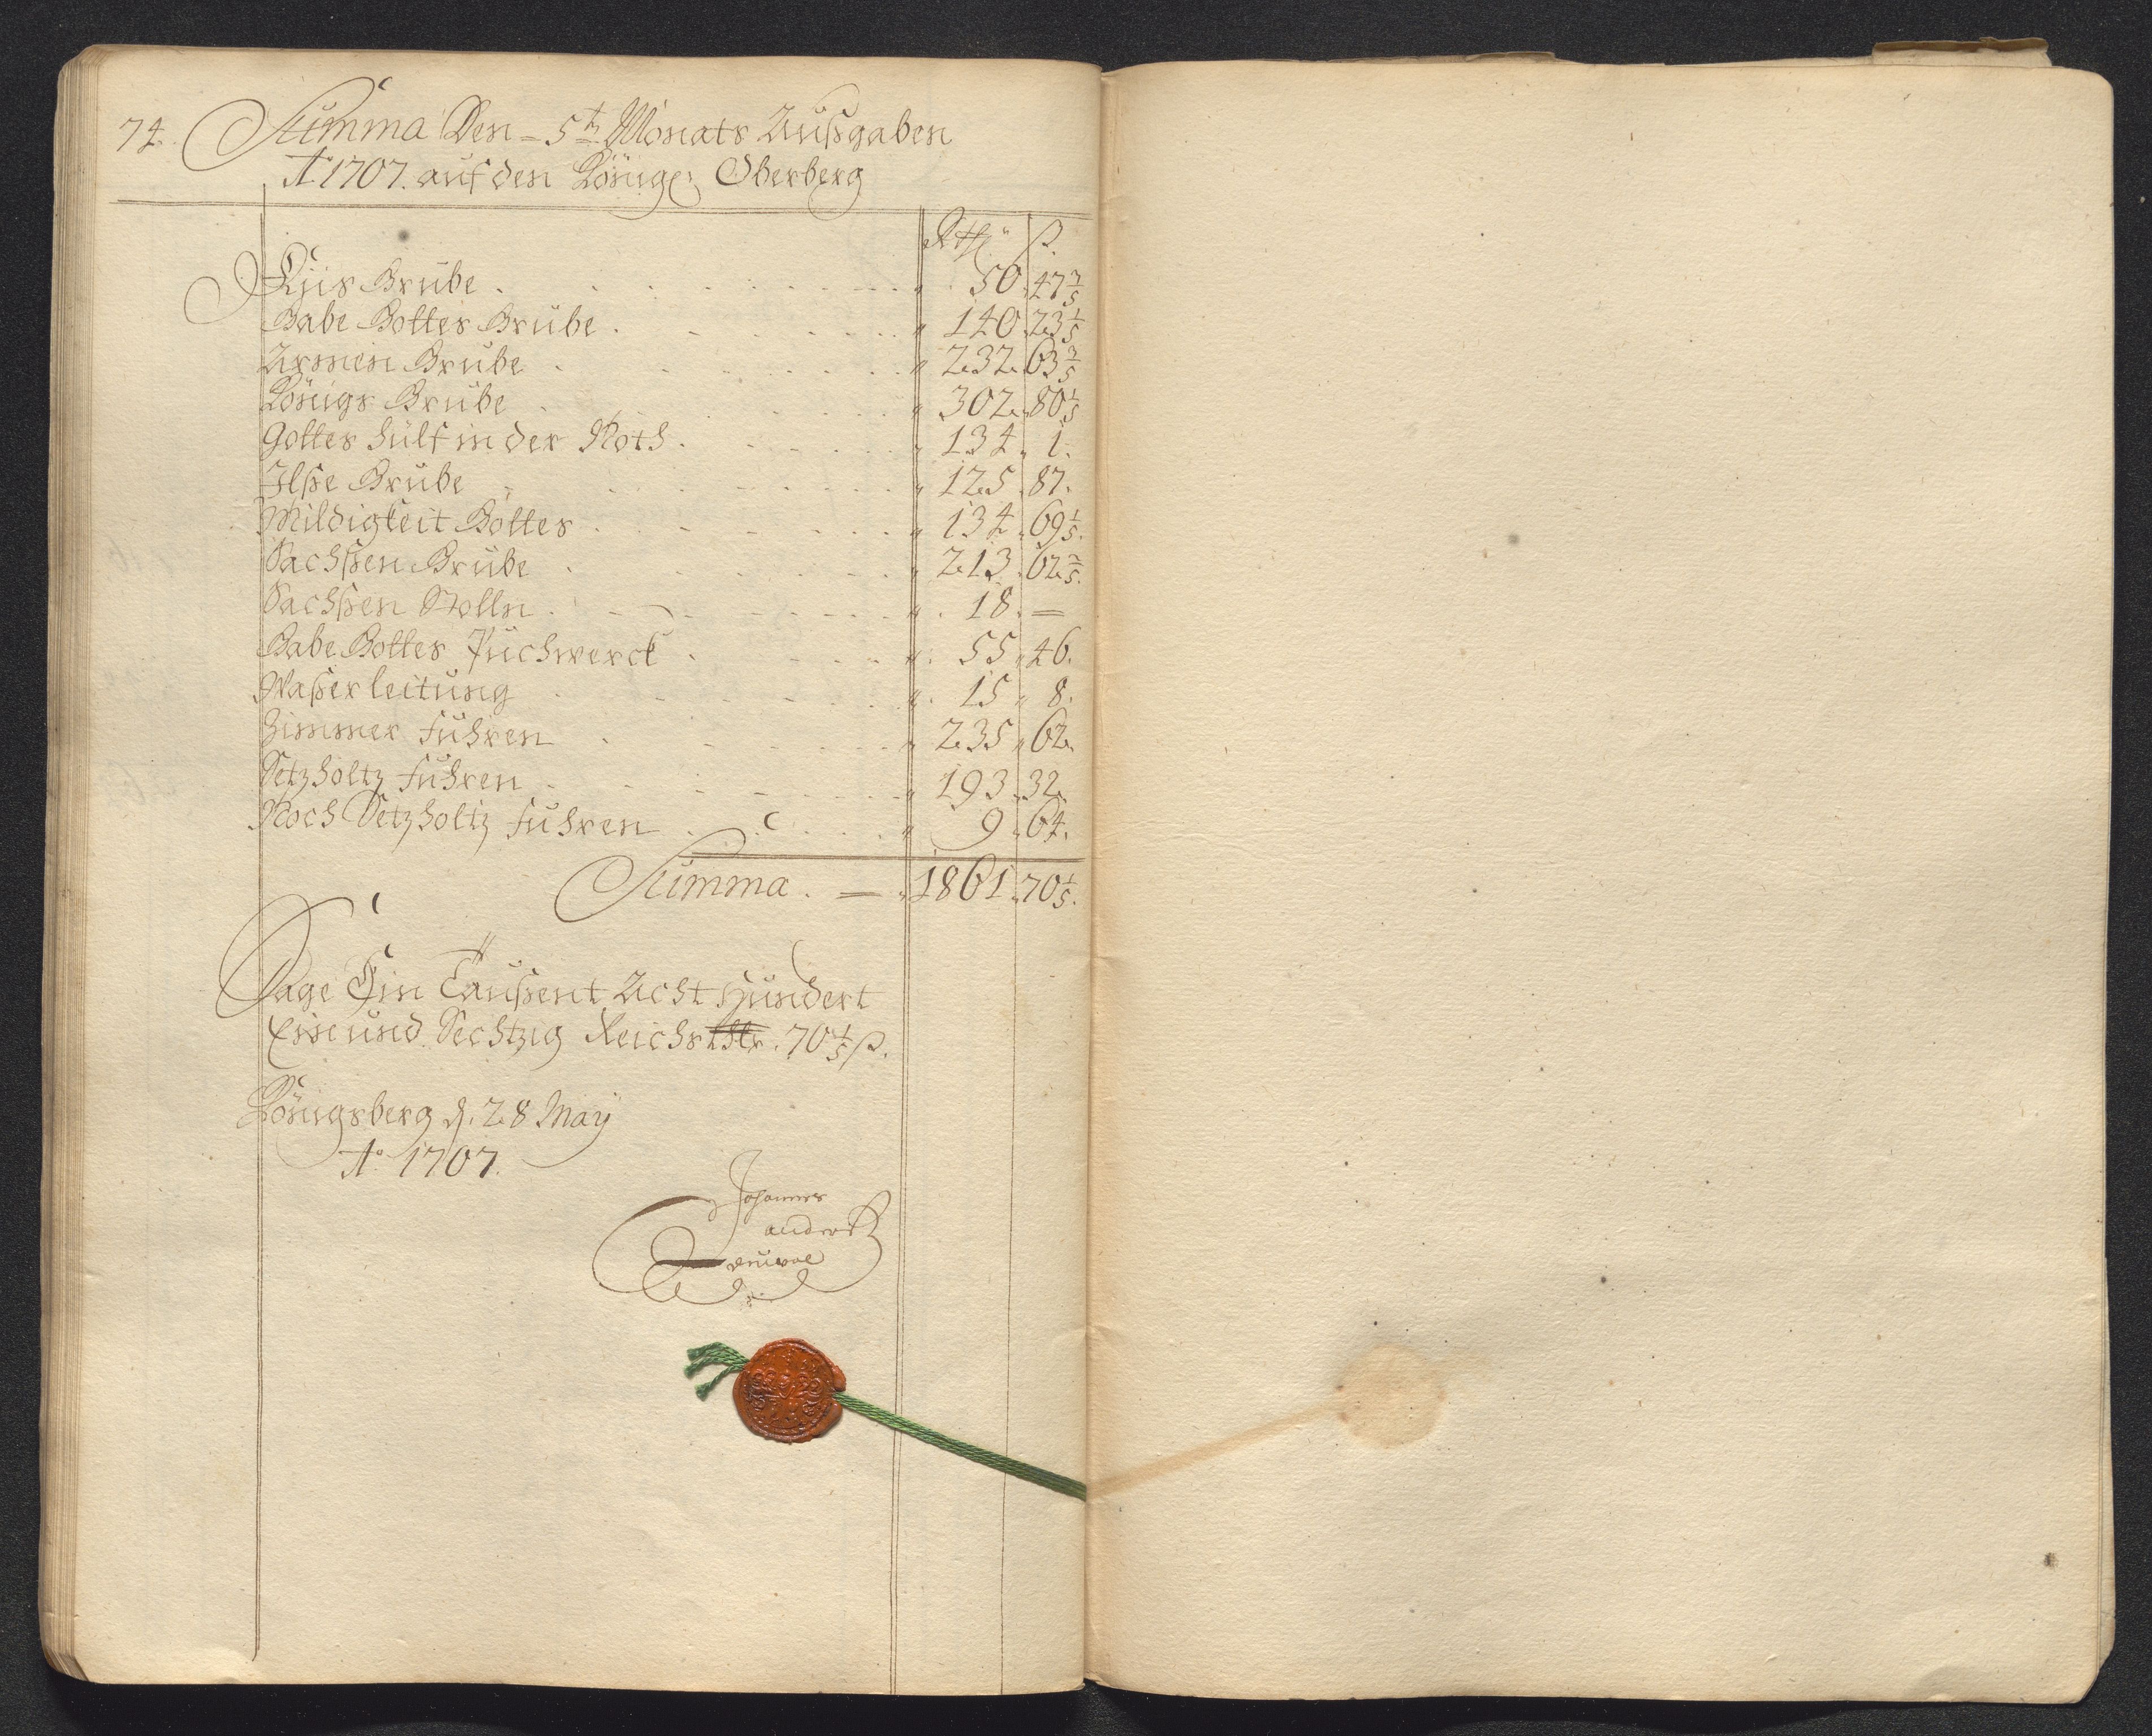 74. Summa Den 5ten Monats Außgaben
A° 1707. auf den Königs Oberberg
Rthl ß.
Kjis Grube 50 47 3/5
Gabe Gottes Grube 140 23 1/5
Armen Grube 232 63 3/5
Königs Grube 302 80 1/5
Gottes Hülf in der Noth 134 1.
Ilße Grube 125 87.
Mildigkeit Gottes 134 69 1/5.
Sachßen Grube 213 62 2/5.
Sachßen Stolln 18. —
Gabe Gottes Puchwerck 55 46.
Waßerleitung 15 8.
Zimmer fuhren 235 62.
Setzholtz fuhren 193 32.
Noch Setzholtz fuhren 9 64.
Summa. — 1861. 70 1/5.
Sage Ein Taußent Acht Hundert
Ein und Sechtzig Reichsthlr. 70 1/5 ß.
Königsberg d. 28 May
A° 1707.
Johannes